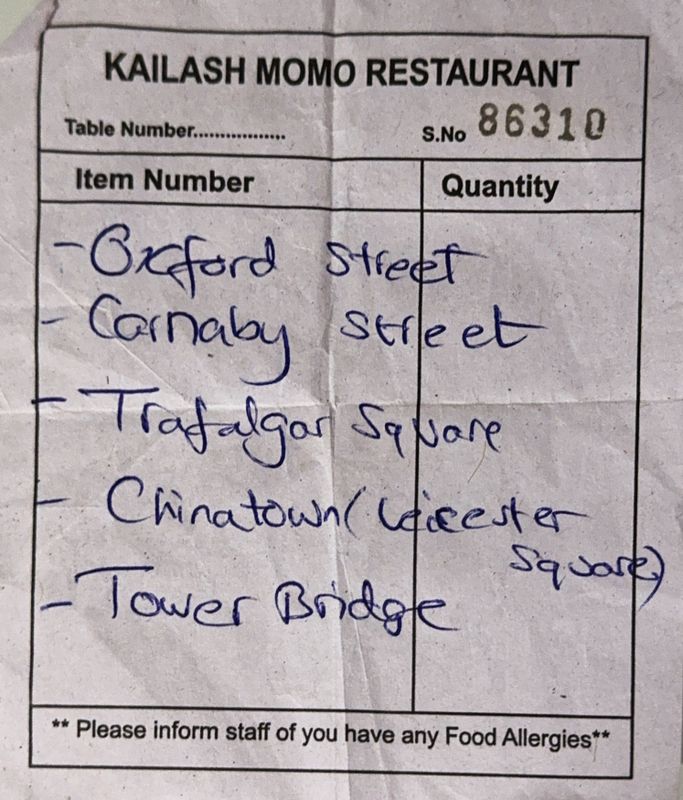 KAILASH MOMO RESTAURANT
Table Number.................. S.No 86310
Item Number Quantity
- Oxford Street
- Carnaby Street
- Trafalgar Square
- Chinatown (Leicester
Square)
- Tower Bridge
** Please inform staff of you have any Food Allergies**